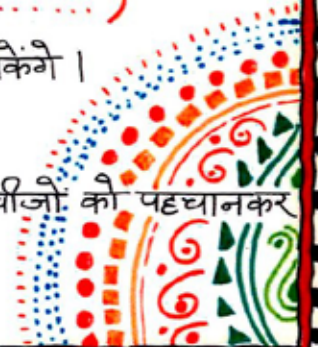 केंगे ।
चीजों को पहचानकर